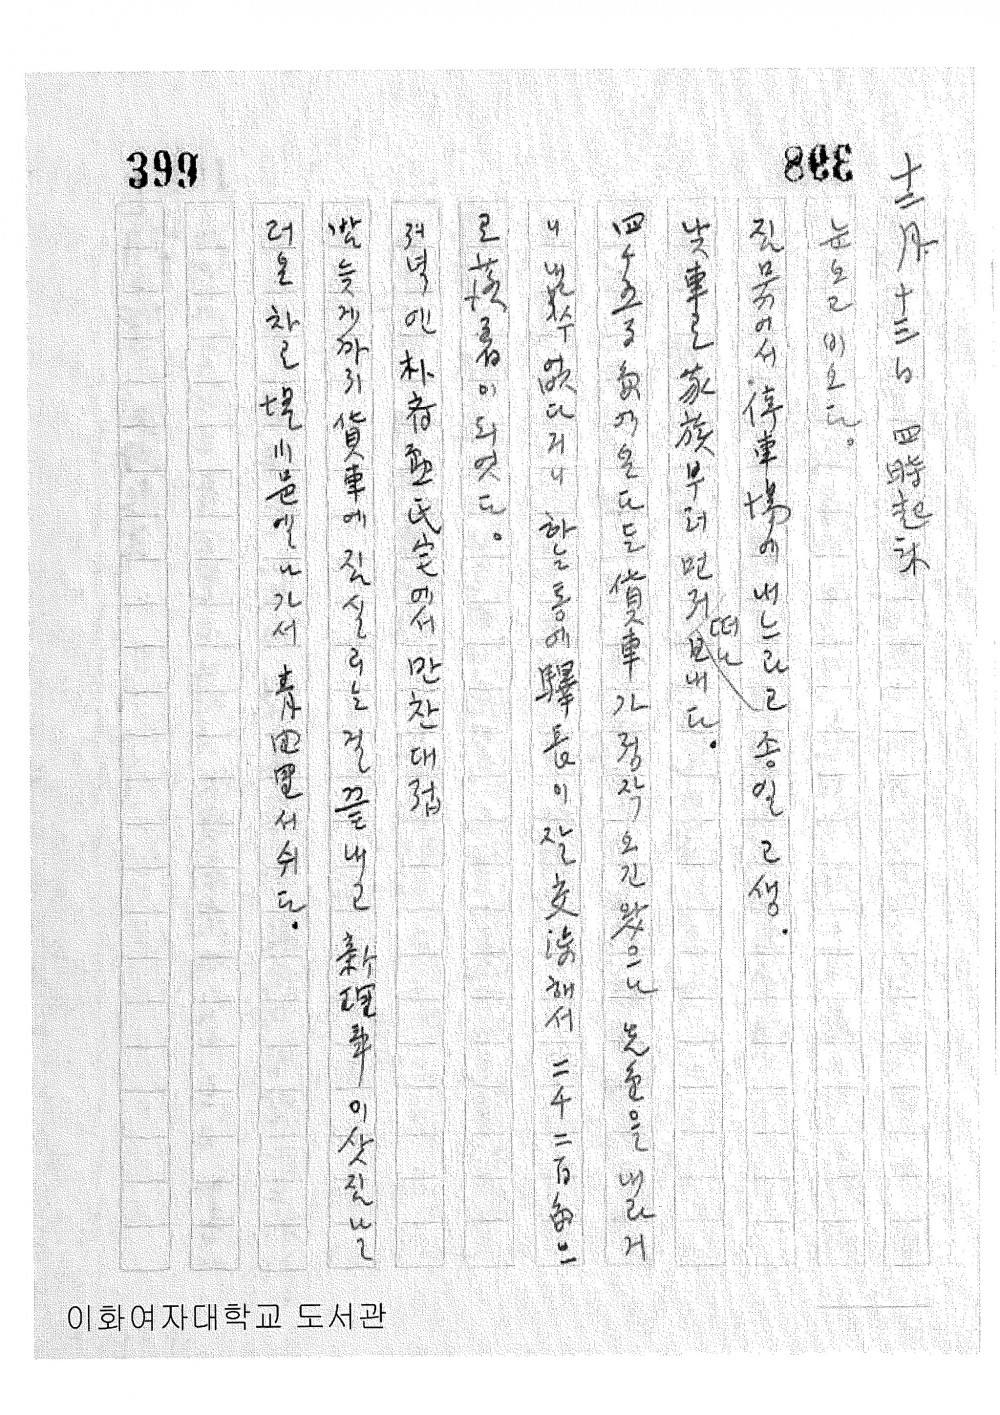 398
399
十二月十三日 四時起床
눈오고 비오다。
짐묶어서 停車場에 내느라고 종일 고생.
낮車로 家族부터 먼저 떠나보내다.
四千五百圓에온다든 貨車가 정작 오긴 왔으나 先金을 내라거
니 낼수 없다거니 하는통에 驛長이 잘 交涉해서 二千二百圓으
로 落着이되엿다。
저녁엔 朴
氏宅에서 만찬대접
밤늦게까지 貨車에 짐실리는걸 끝내고 新理車 이삿짐날
러온 차로 堤川邑엘나가서 靑田里서쉬다.
이화여자대학교 도서관